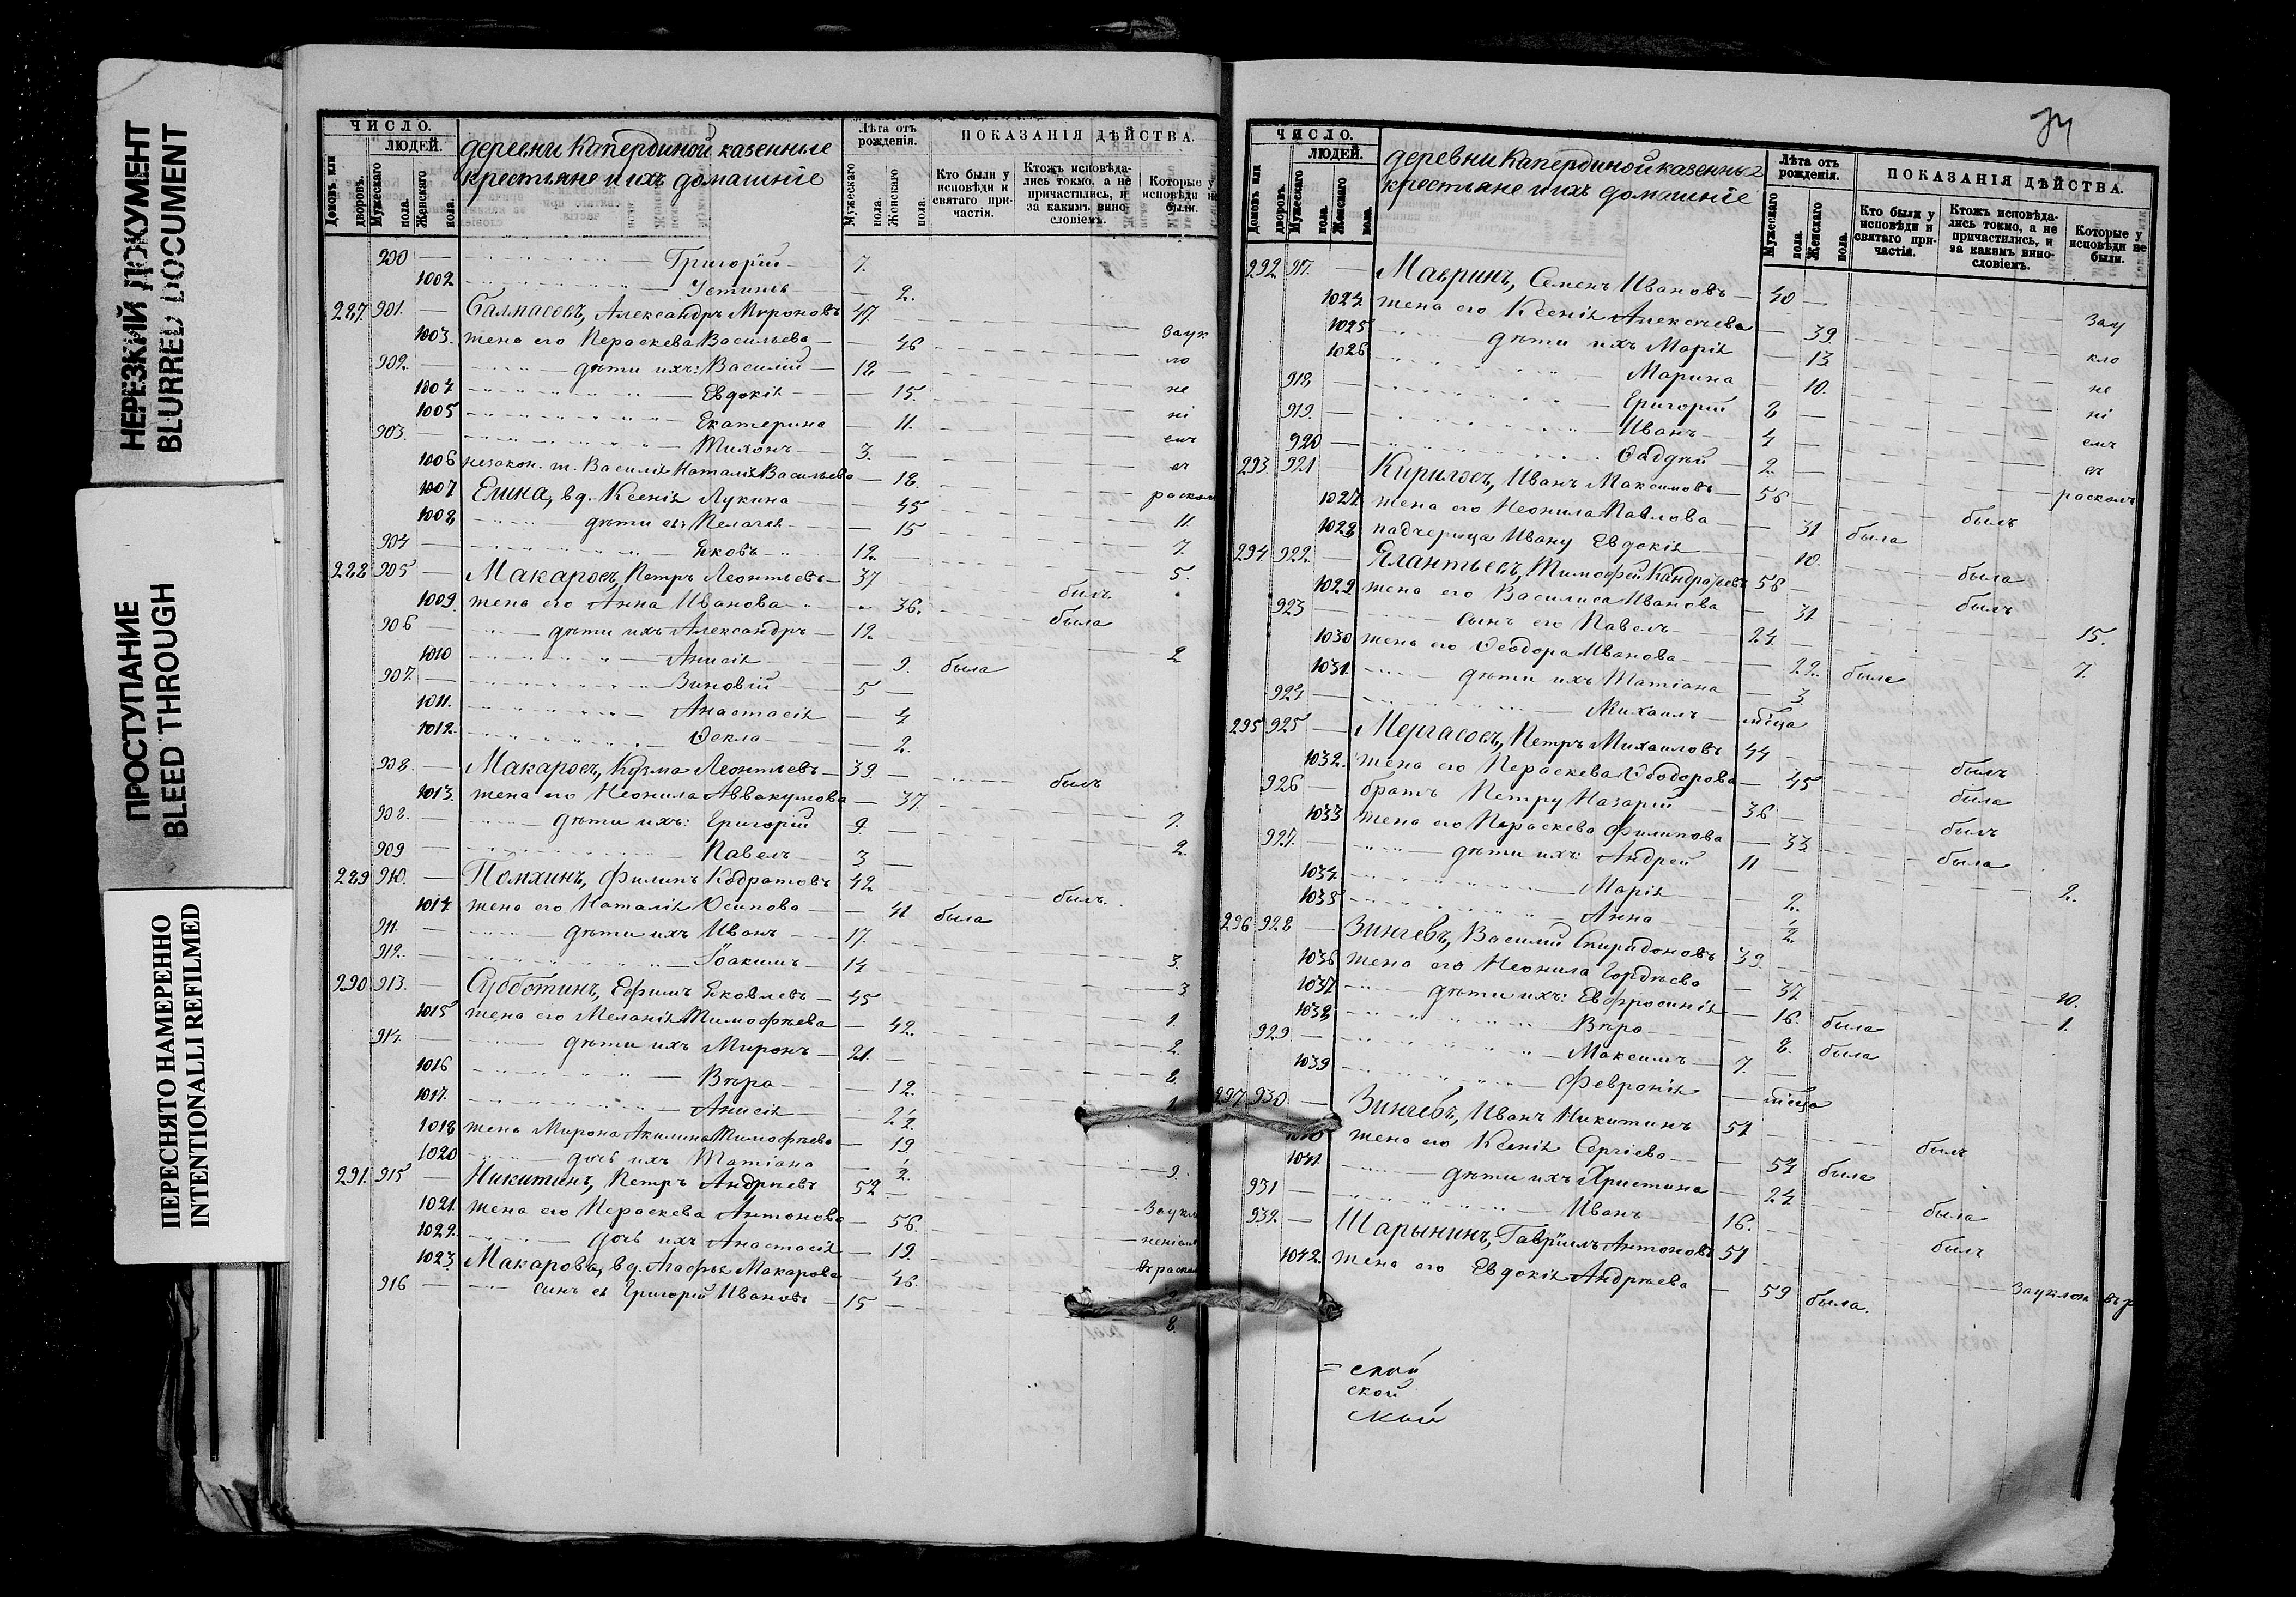 НЕРЕЗКИЙ ДОКУМЕНТ
BLURRED DOCUMENT
ПРОСТУПАНИЕ
BLEED THROUGH
ПЕРЕСНЯТО НАМЕРЕННО
INTENTIONALLI REFILMED
ЧИСЛО.
ЛЮДЕЙ.
Домовъ или дворовъ.
Мужескаго пола.
Женскаго пола.
деревни Копердиной казенные
крестьяне и ихъ домашніе
Лѣта отъ рожденія.
Мужескаго пола.
Женскаго пола.
ПОКАЗАНІЯ ДѢЙСТВА.
Кто были у исповѣди и святаго причастія.
Ктожъ исповѣдались токмо, а не причастились, и за какимъ винословіемъ.
Которые у исповѣди не были.
900 Григорій 7.
1002 Устинья 2.
287. 901. Балмасовъ, Александръ Мироновъ 47
1003. жена его Параскева Васильева 46 Заук
902. дѣти ихъ: Василій 18 ло
1004 Евдокія 15. не
1005 Екатерина 11. ні
903. Тихонъ 3. емъ
1006 незакон. Василія Наталія Васильева 18. въ
1007 Елина, вд. Ксенія Лукина 45 раскол
1008 дѣти ея: Пелагея 15 11
904 Яковъ 12. 7.
288 905 Макаровъ, Петръ Леонтьевъ 37 былъ 5.
1009. жена его Анна Иванова 36. была
906 дѣти ихъ Александръ 12.
1010 Анисія 9. была 2
907. Зиновій 5
1011. Анастасія 4
1012. Ѳекла 2.
908. Макаровъ, Кузма Леонтьевъ 39. былъ
1013. жена его Неонила Аввакумова 37.
908. дѣти ихъ: Григорій 9. 7.
909 Павелъ 3 2.
289 910. Помхинъ, Филипъ Кодратовъ 42. былъ.
1014. жена его Наталія Осипова 41 была
911. дѣти ихъ Иванъ 17.
912. Іоакимъ 14 3.
290 913. Субботинъ, Ефимъ Яковлевъ 45 3
1015 жена его Меланія Тимофѣева 42. 1.
914. дѣти ихъ Миронъ 21. 2.
1016 Вѣра 12. 8.
1017. Анисія 1
1018 жена Мирона Акилина Тимофѣева 19.
1020 дочь ихъ Татіана 9.
291. 915 Никитинъ, Петръ Андрѣевъ 52
1021. жена его Параскева Антонова 56. Заукл
1022. дочь ихъ Анастасія 19. неніемъ
1023 Макарова, вд. Марфа Макарова 46. въ раскол
916 сынъ ея Григорій Ивановъ 15
8.
ЧИСЛО.
ЛЮДЕЙ.
Домовъ или дворовъ.
Мужескаго пола.
Женскаго пола.
деревни Капердиной казенные
крестьяне и ихъ домашніе
Лѣта отъ рожденія.
Мужескаго пола.
Женскаго пола.
ПОКАЗАНІЯ ДѢЙСТВА.
Кто были у исповѣди и святаго причастія.
Ктожъ исповѣдались токмо, а не причастились, и за какимъ винословіемъ.
Которые у исповѣди не были.
292 917. Мавринъ, Семенъ Ивановъ 40
1024 жена его Ксенія Алексѣева 39. Зау
1025 дѣти ихъ Марія 13 кло
1026 Марина 10. не
918 Григорій 8 ні
919. Иванъ 4 емъ
920 Ѳаддѣй 2. въ
293. 921 Кириловъ, Иванъ Максимовъ 56 былъ расколъ
1027. жена его Неонила Павлова 31 была
1028. падчерица Ивану Евдокія 10. была
294 922. Ялантьевъ, Тимофей Кандратьевъ 56 былъ
1029 жена его Василиса Иванова 31. 15.
923 сынъ его Павелъ 24.
1030 жена его Ѳеодора Иванова 22. была 7.
1031. дѣти ихъ Татіана 3
924. Михаилъ мѣсяца
295 925 Мергасовъ, Петръ Михаиловъ 44 былъ
1032. жена его Параскева Ѳеодорова 45 была
926 братъ Петру Назарій 36 былъ
1033 жена его Параскева Филипова 33 была
927. дѣти ихъ: Андрей 11 2.
1034. Марія 2.
1035 Анна
296 928 Зинчевъ, Василій Спиридоновъ 39.
1036 жена его Неонила Гордѣева 37 10.
1037 дѣти ихъ: Евфросинія 16. была 1.
1038 Вѣра 8. была
929 Максимъ 7.
1039 Февронія мѣсяца
297 930. Зинчевъ, Иванъ Никитинъ 51 былъ
1040 жена его Ксенія Сергіева 54 была
1041. дѣти ихъ Христина 24 была
931 Иванъ 16. былъ
932. Шарынинъ, Гавріилъ Антоновъ 51 Зауклон въ р
1042. жена его Евдокія Андрѣева 59 была.
= ской
ской
ской